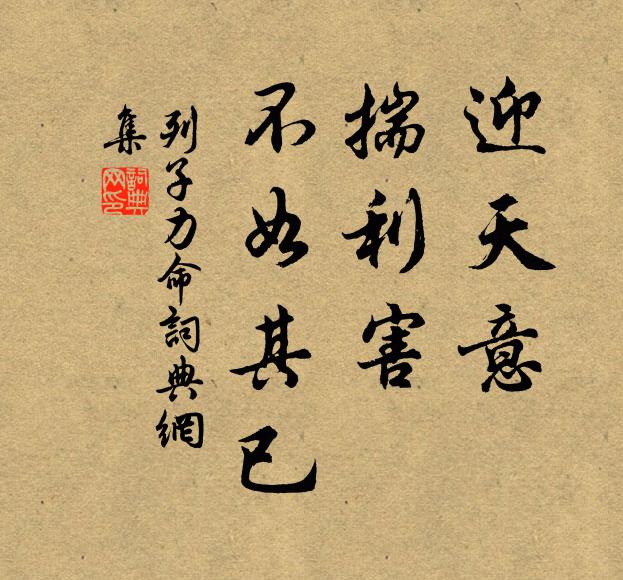 迎天意
揣利害
不如其已
列子力命詞典網
集
詞典
网印